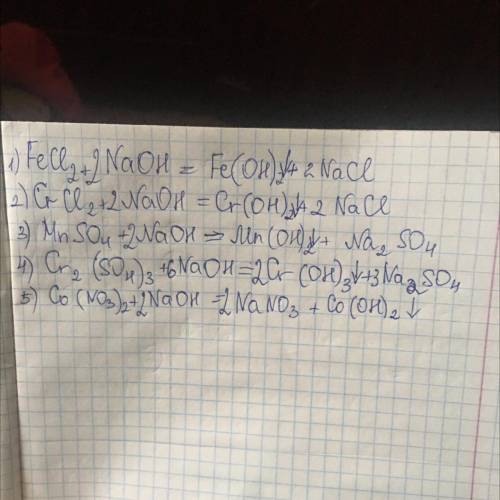 1) FeCl₂+2NaOH = Fe(OH)₂↓+ 2NaCl
2) CrCl₂+2NaOH = Cr(OH)₂↓+2 NaCl
3) MnSO₄+2NaOH ⇒ Mn(OH)₂↓+ Na₂SO₄
4) Cr₂(SO₄)₃+6NaOH=2Cr(OH)₃↓+3Na₂SO₄
5) Co(NO₃)₂+2NaOH=2NaNO₃ + Co(OH)₂↓